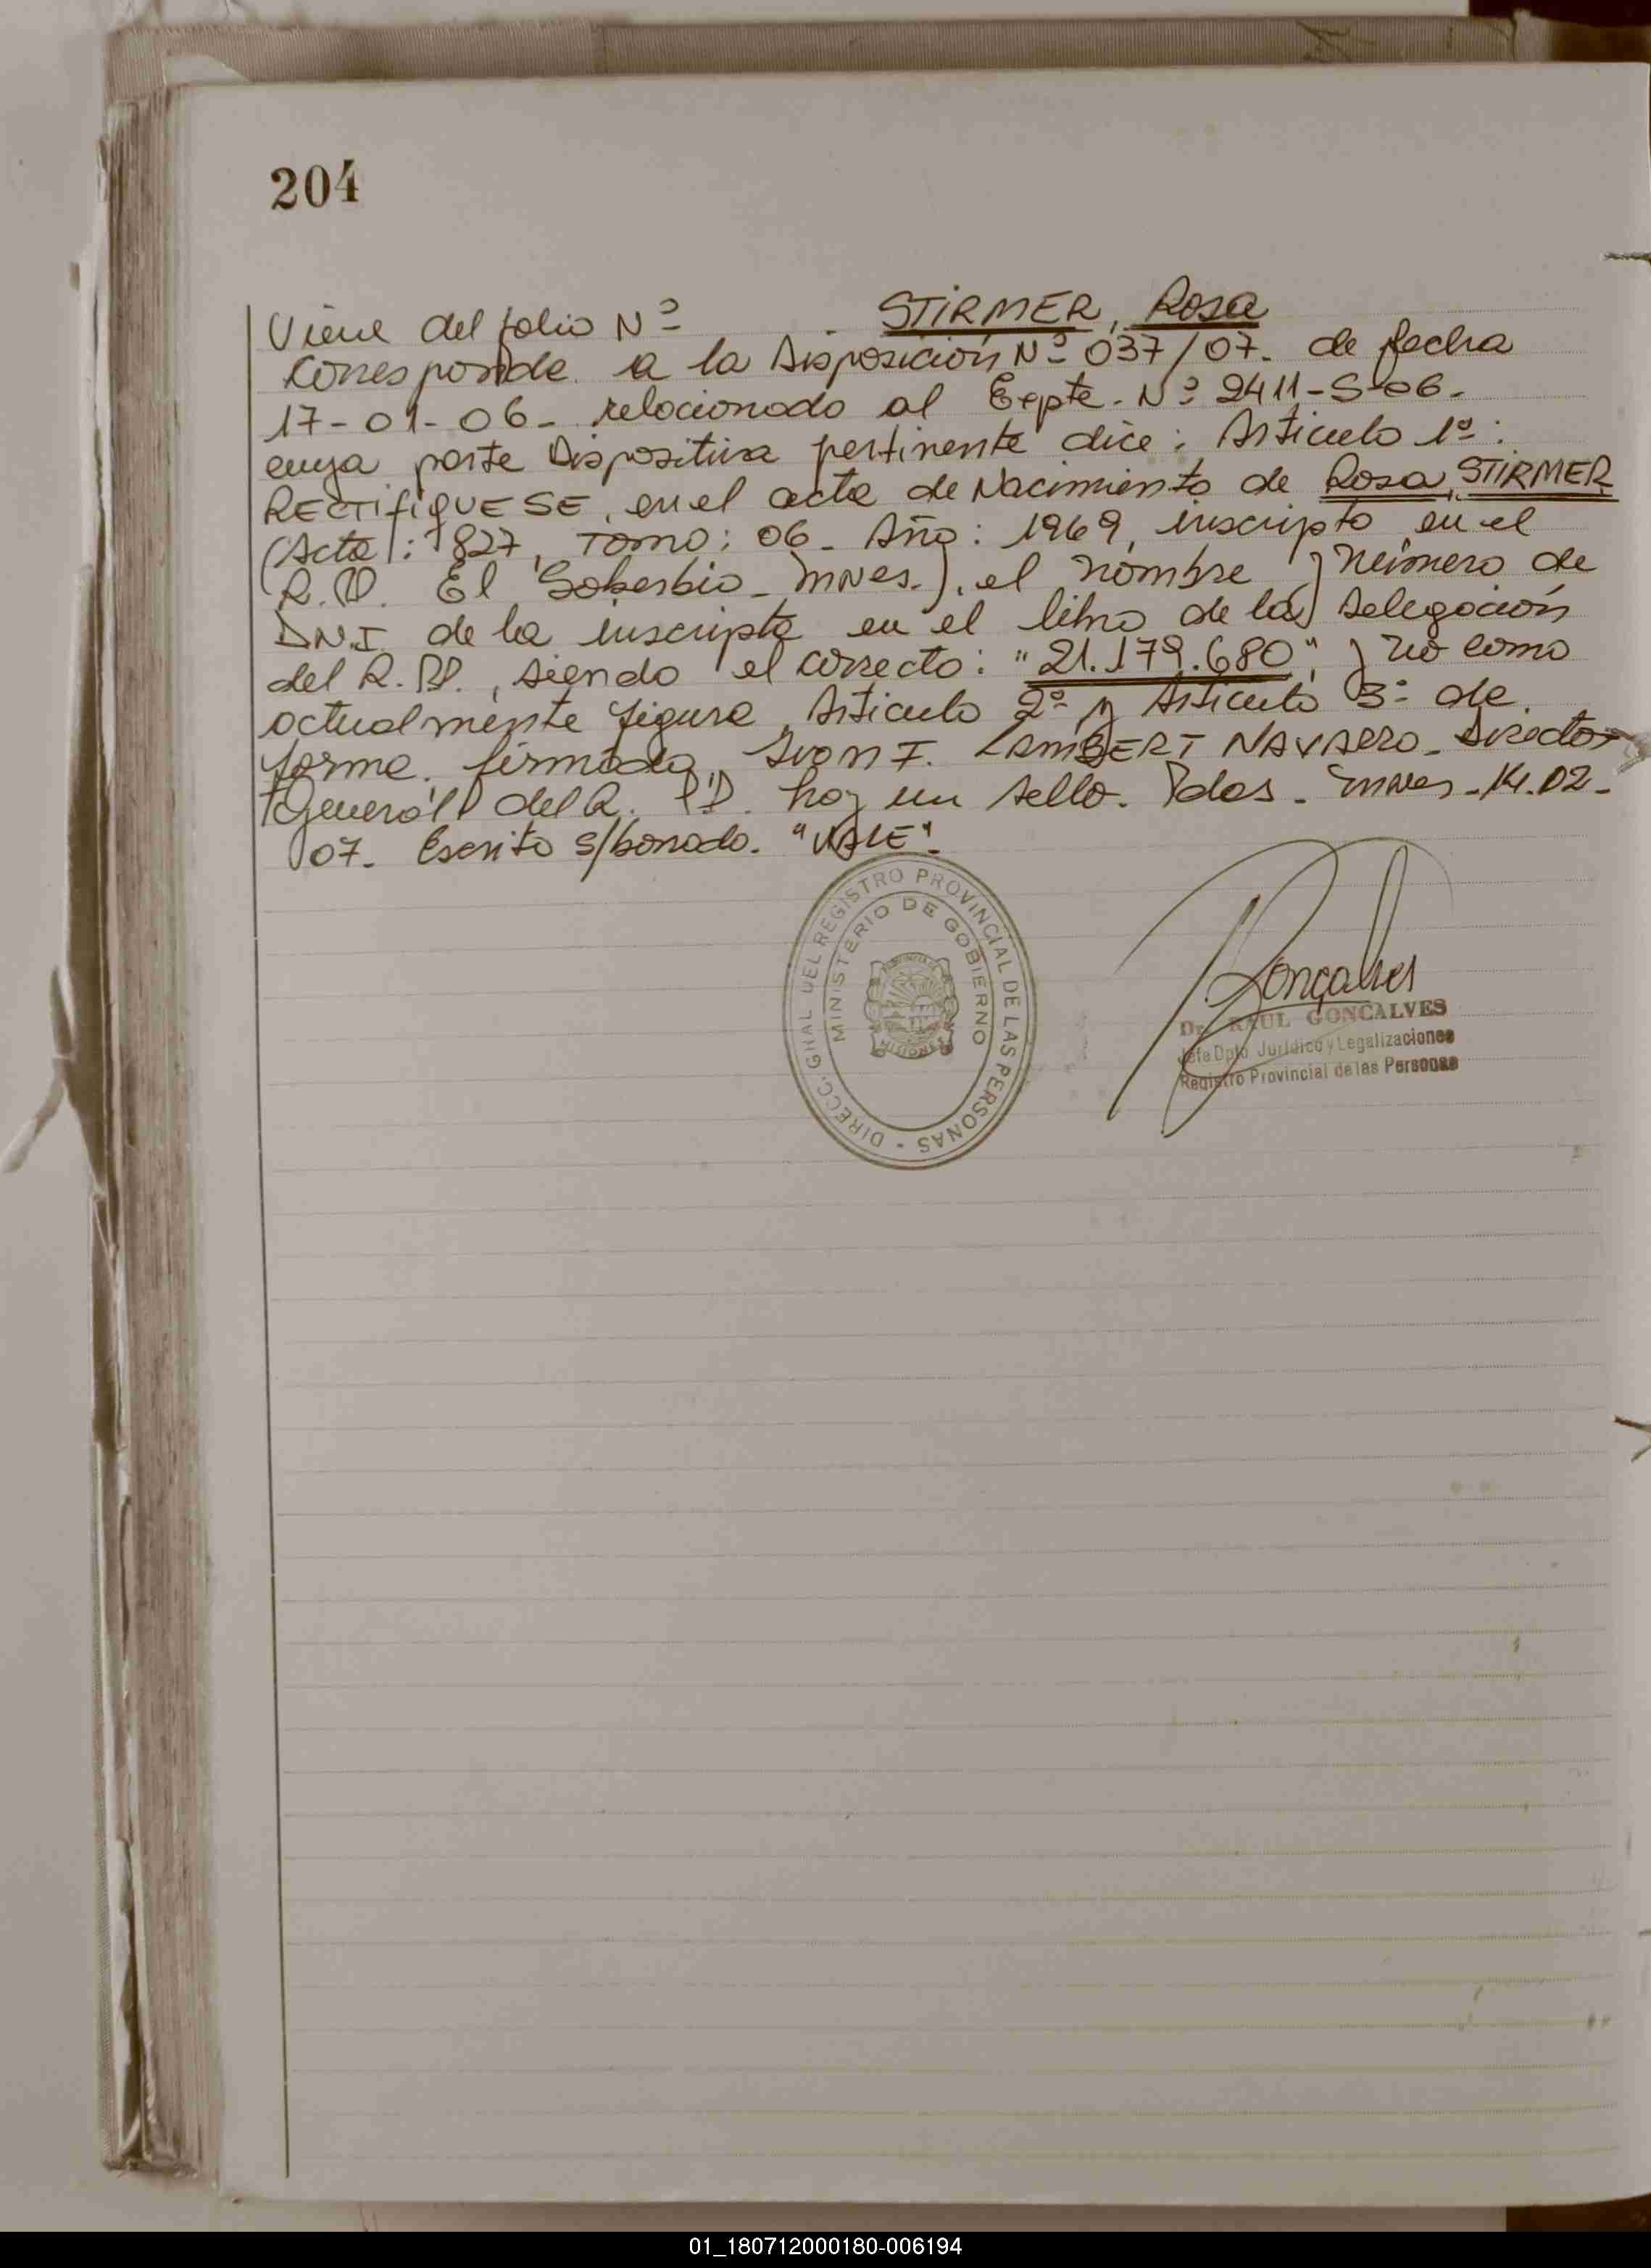 204
Viene del folio Nº . STIRMER, Rosa
Corresponde a la Disposición Nº 037/07. de fecha
17-01-06- relacionado al Expte. Nº 2411-S-06-
cuya parte Dispositiva pertinente dice: Articulo 1º:
RECTIFIQUESE, en el acta de Nacimiento de Rosa, STIRMER
(Acta: 827, Tomo: 06- Año: 1969, inscripto en el
R.P. El Soberbio- Mnes.), el nombre y número de
D.N.I. de la inscripta en el libro de la Delegación
del R.P., siendo el correcto: "21.179.680", y no como
actualmente figura, Articulo 2º y Articulo 3º de
forma. firmado, Ivon I. LAMBERT NAVARRO- Director
General del R. P. hay un sello. Pdas- Mnes-14.02-
07- Escrito s/borrado. "VALE"-
DIRECC. GRAL DEL REGISTRO PROVINCIAL DE LAS PERSONAS -
MINISTERIO DE GOBIERNO
PROVINCIA DE
MISIONES
Gonçalves
Dr. RAUL GONCALVES
Jefe Dpto Jurídico y Legalizaciones
Registro Provincial de las Personas
01_180712000180-006194